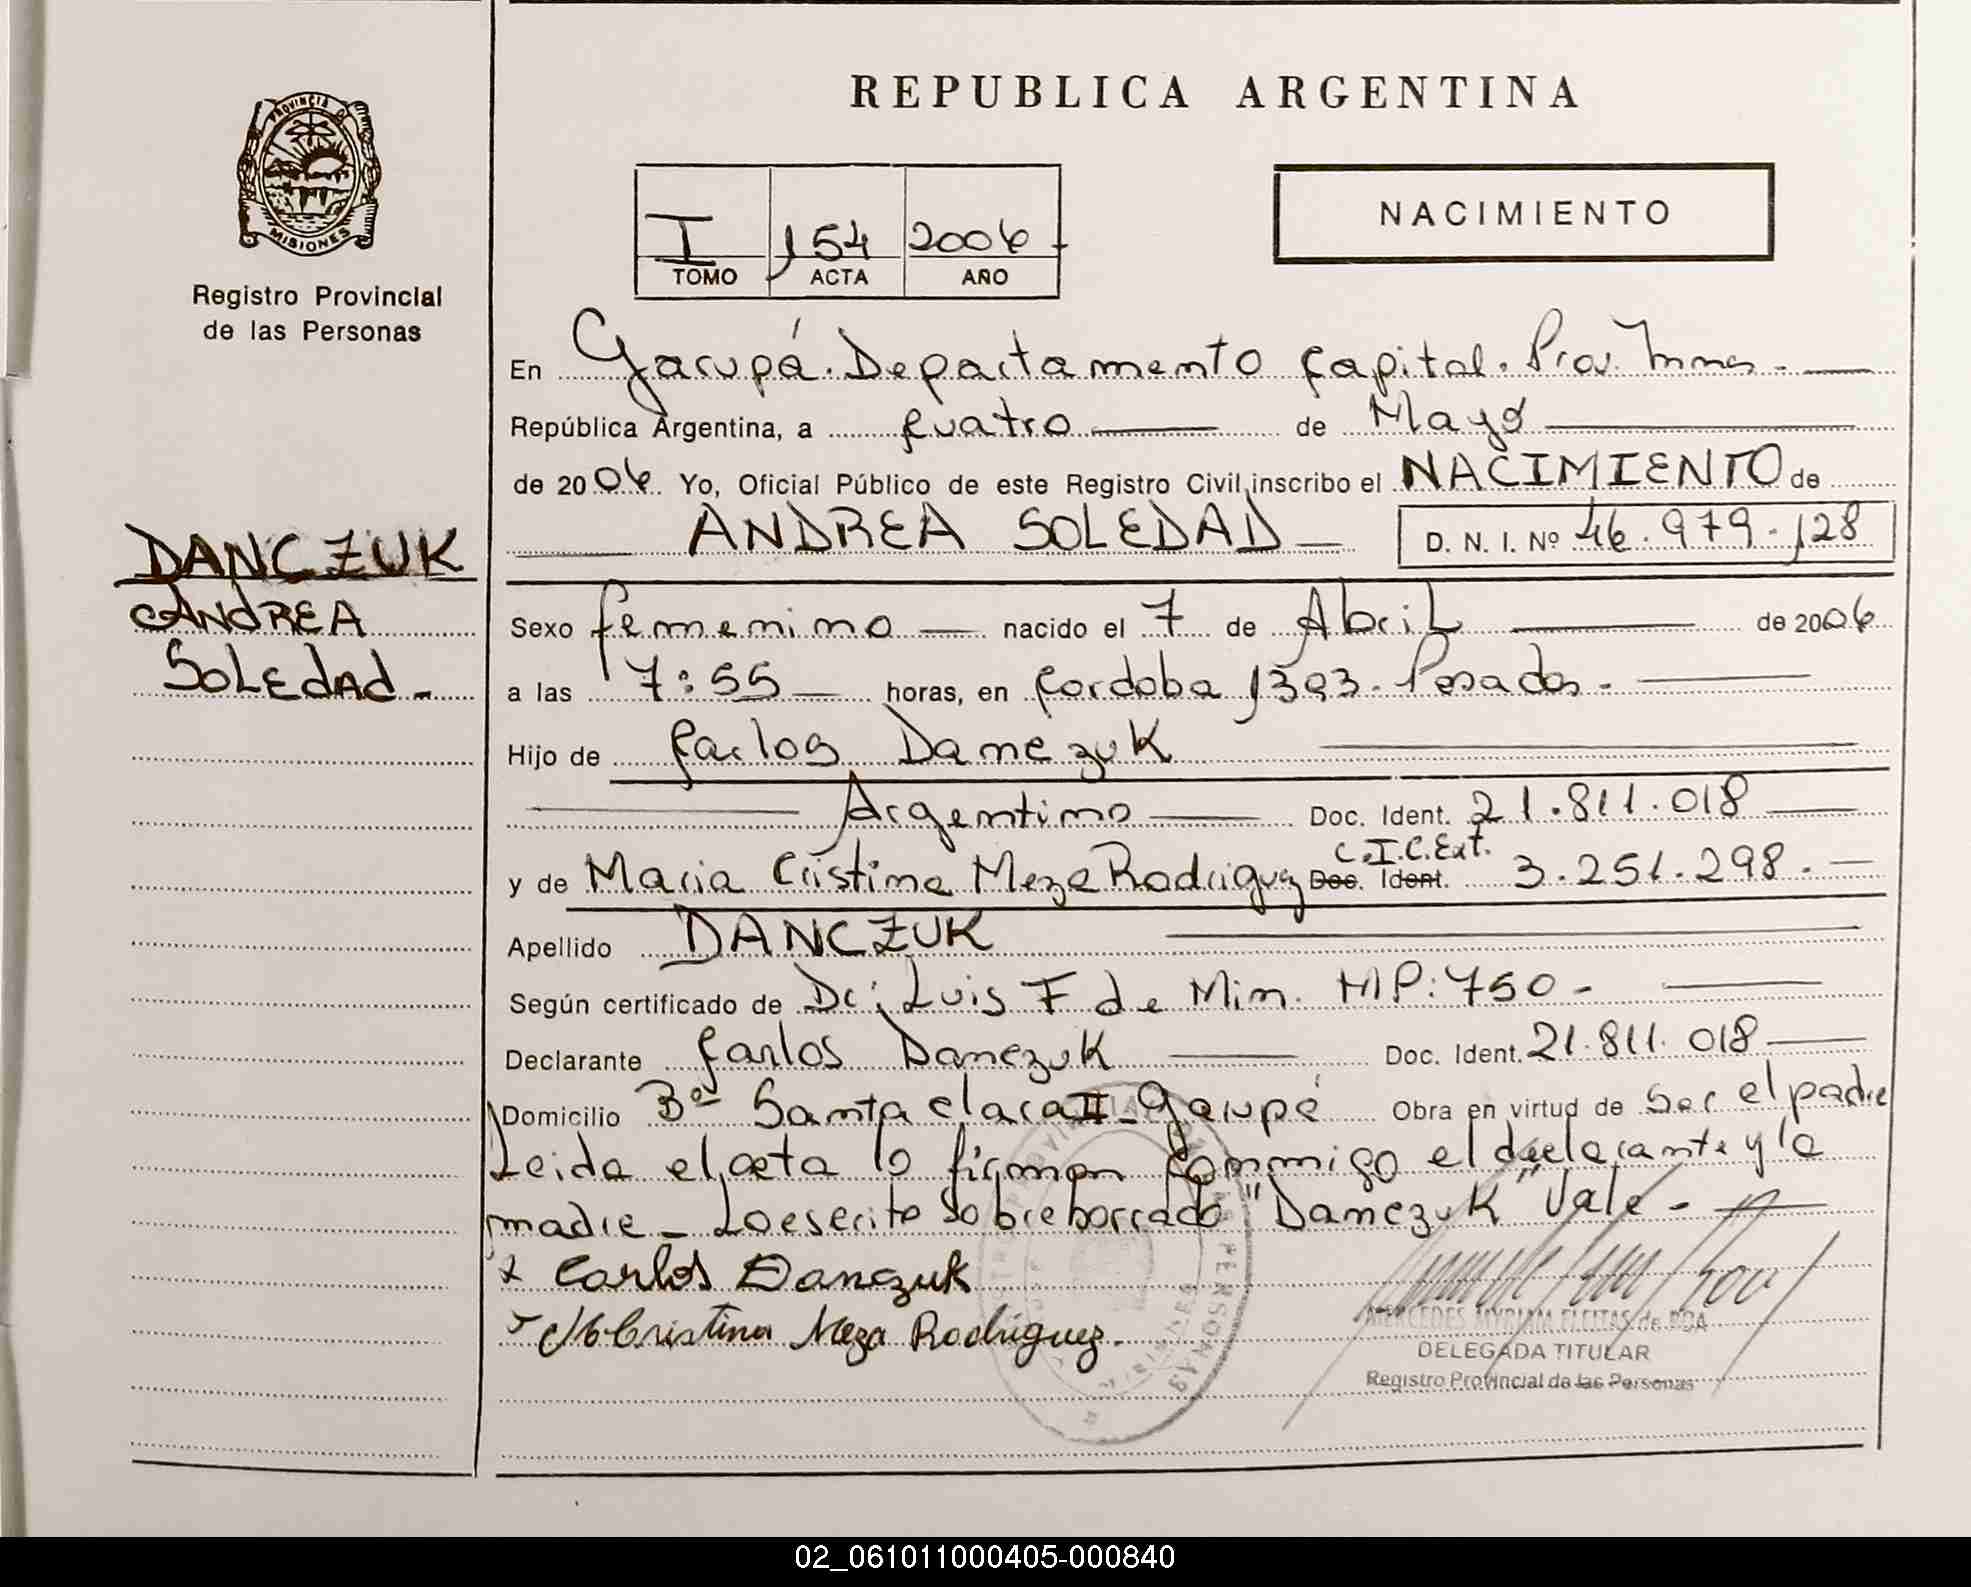 REPUBLICA ARGENTINA
PROVINCIA DE
MISIONES
Registro Provincial
de las Personas
I 154 2006
TOMO ACTA AÑO
NACIMIENTO
En Garupá. Departamento Capital. Prov. Mnes. —
República Argentina, a cuatro — de Mayo —
de 2006 Yo, Oficial Público de este Registro Civil inscribo el NACIMIENTO de
— ANDREA SOLEDAD — D. N. I. Nº 46.979.128
DANCZUK
ANDREA
SOLEDAD -
Sexo femenino — nacido el 7 de Abril — de 2006
a las 7:55 — horas, en Cordoba 1393. Posadas. —
Hijo de Carlos Danczuk —
— Argentino — Doc. Ident. 21.811.018 —
C.I.C.Ext.
y de Maria Cristina Meza Rodriguez Doc. Ident. 3.251.298. —
Apellido DANCZUK —
Según certificado de Dr: Luis F de Min. MP: 750 - —
Declarante Carlos Danczuk — Doc. Ident. 21.811.018 —
Domicilio Bº Santa Clara II - Garupá Obra en virtud de Ser el padre
Leida el acta lo firman conmigo el declarante y la
madre _ Lo escrito sobre borrado "Danczuk" Vale -
x Carlos Danczuk
Mª Cristina Meza Rodriguez.
MERCEDES MYRIAM FLEITAS de ROA
DELEGADA TITULAR
Registro Provincial de las Personas
02_061011000405-000840